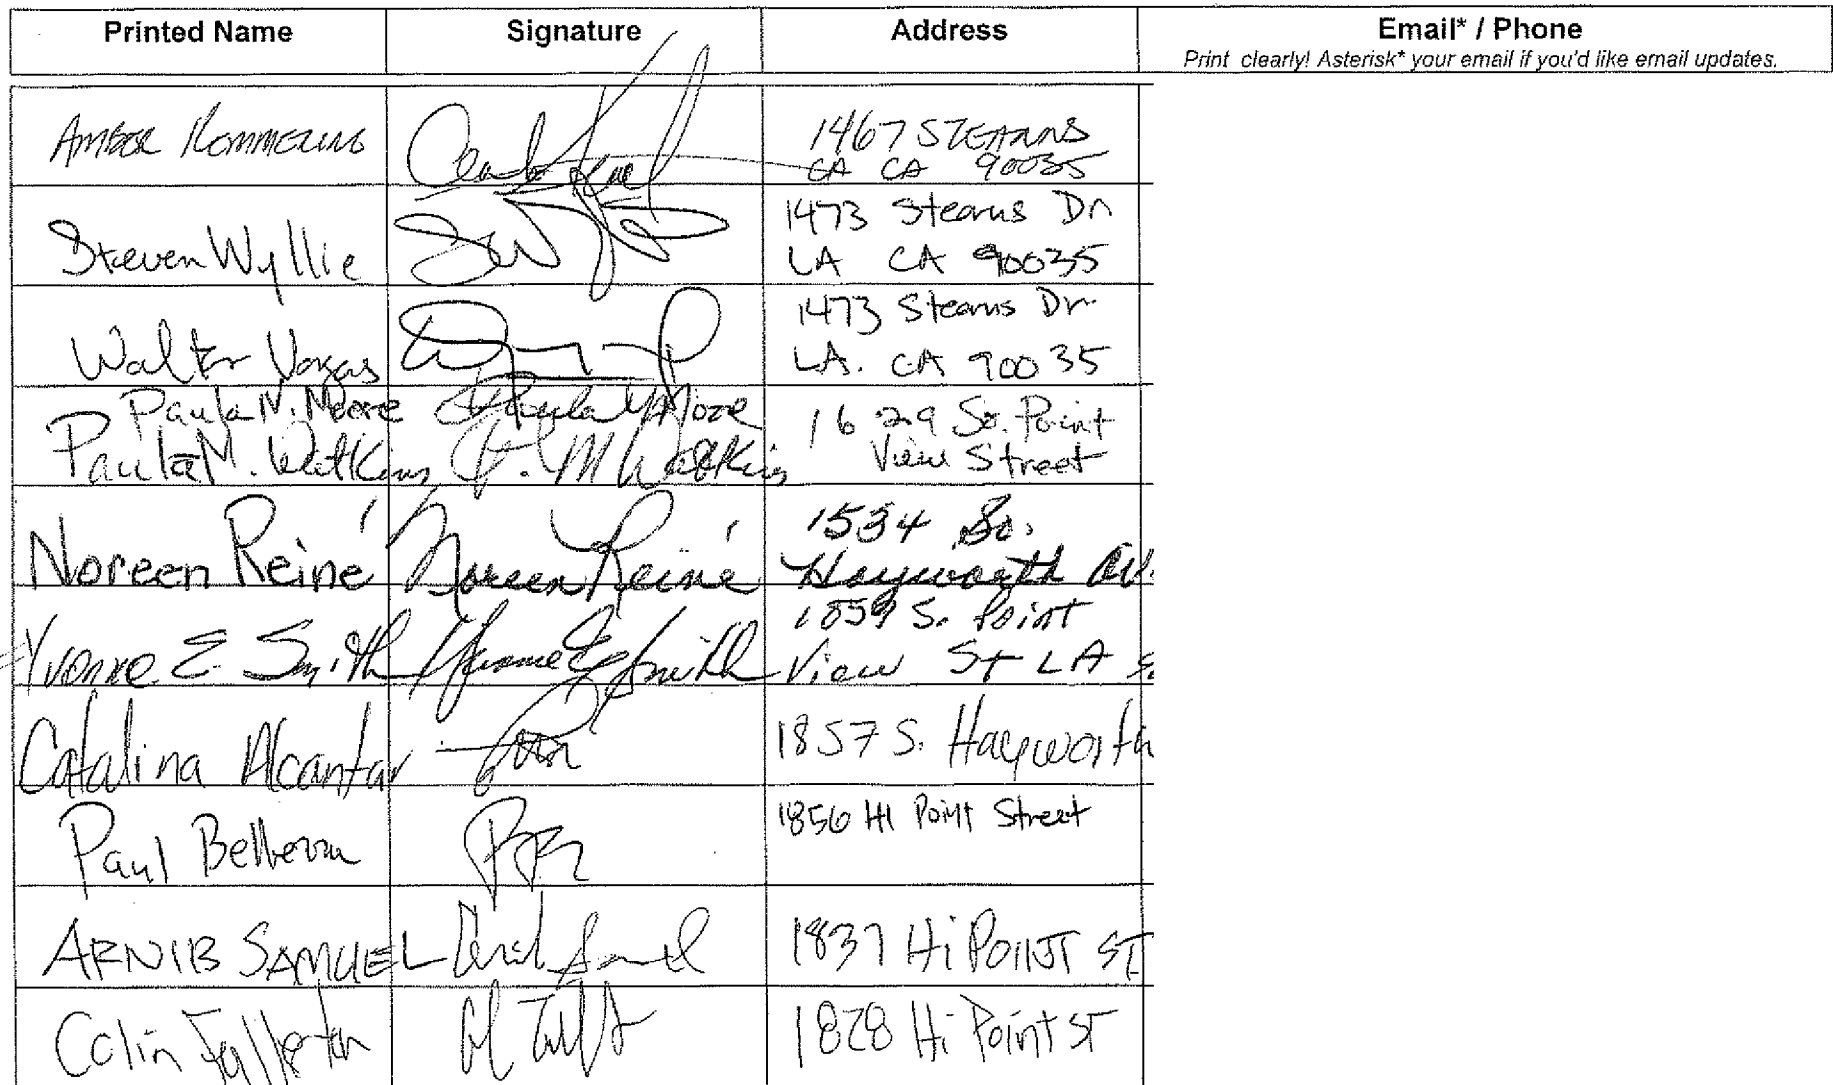 Printed Name Signature Address Email* / Phone
Print clearly! Asterisk* your email if you'd like email updates.
1467 STEARNS
CA CA 90035
Steven Wyllie
1473 Stearns Dr
LA CA 90035
Walter Vargas
1473 Stearns Dr
LA. CA 90035
Paula N. Moore Paula Moore
Paula M. Watkins P. M Watkins
1629 So. Point
View Street
Noreen Reiné Noreen Reiné
1534 So.
Hayworth av.
Yvonne E. Smith Yvonne E Smith
1859 S. Point
View St LA
Catalina Alcantar
1857 S. Hayworth
Paul
1856 Hi Point Street
SAMUEL
1837 Hi POINT ST
Colin Fullerton
1828 Hi Point ST